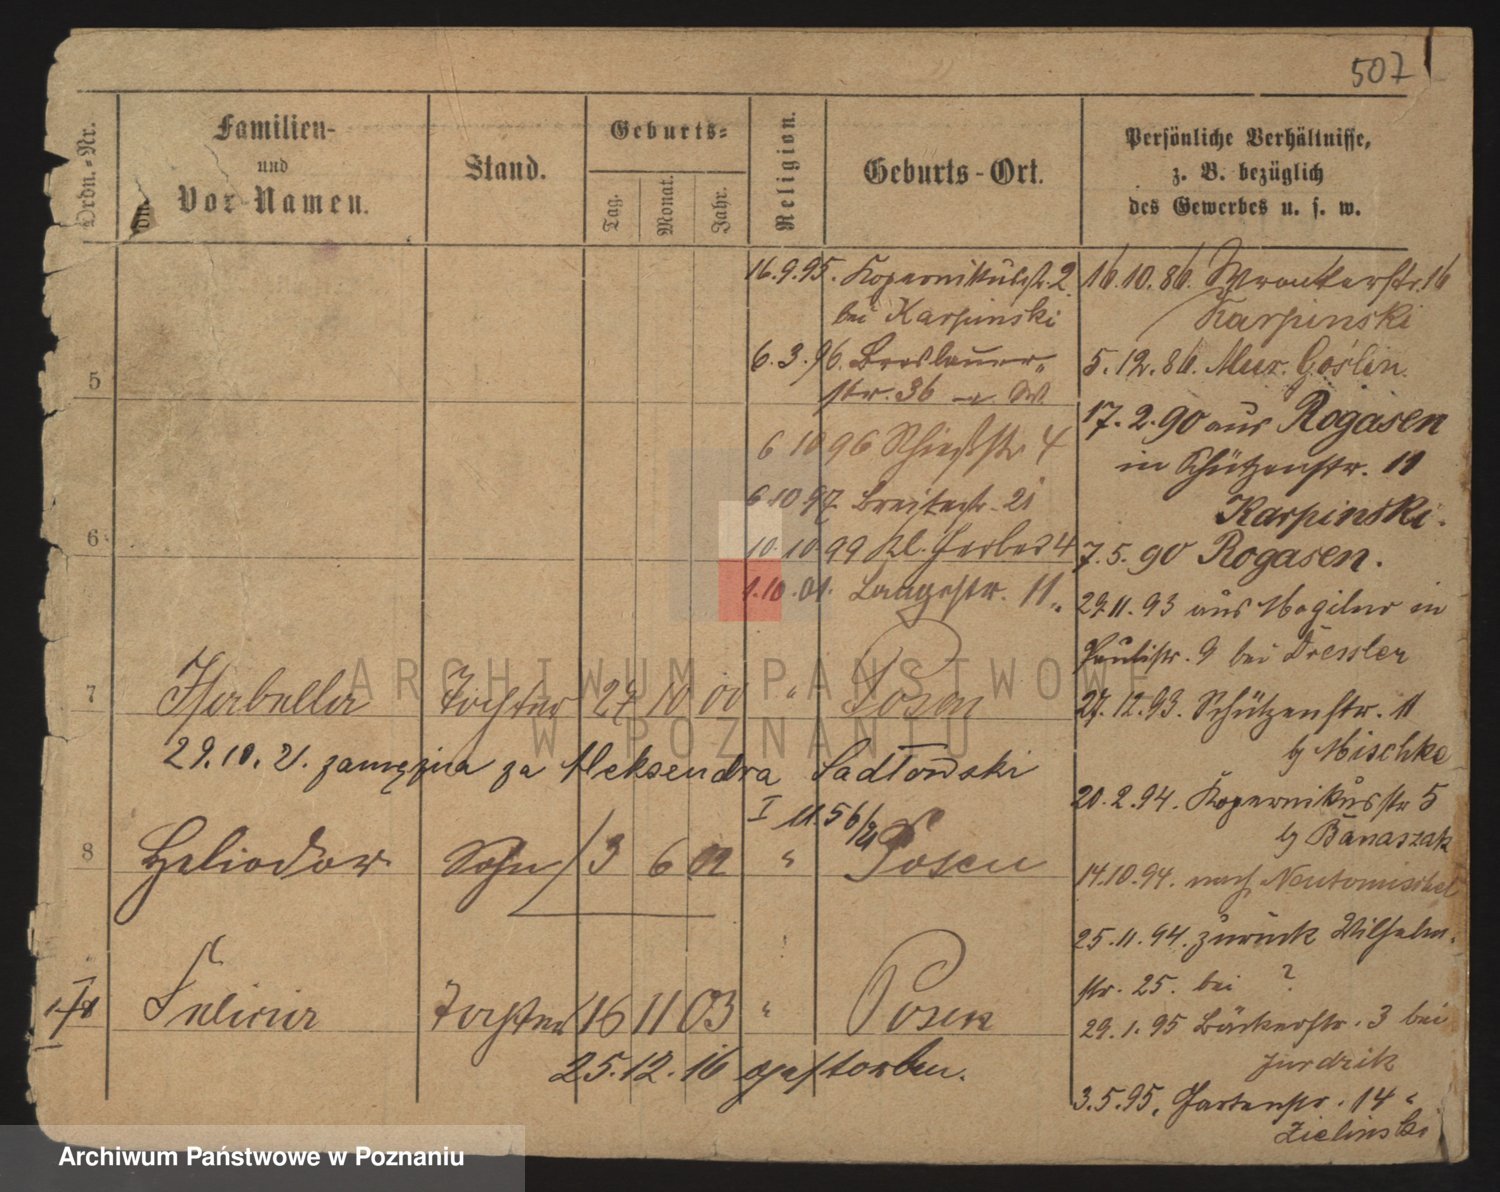 507
Ordn.-Nr.
Familien-
und
Vor-Namen.
Stand.
Geburts-
Tag.
Monat.
Jahr.
Religion.
Geburts-Ort.
Persönliche Verhältnisse,
z. B. bezüglich
des Gewerbes u. s. w.
16.9.95. Kopernikusstr. 2
bei Karpinski
6.3.96. Breslauer-
str. 36 a. W.
6 10 96 Schießstr 4
6 10 97 Breitestr. 21
10.10 99 Kl. Gerber 4
1.10.01. Langestr. 11
5
6
7 Isabella Tochter 27 10 00 " Posen
29.10.21. zamężna za Aleksandra Sadłowski
I 11.56/21
8 Heliodor Sohn 3 6 02 " Posen
Felicia Tochter 16 11 03 " Posen
25.12.16 gestorben.
16.10.86. Wronkerstr. 16
Karpinski
5.12.86. Mur. Goslin.
17.2.90 aus Rogasen
in Schützenstr. 11
Karpinski.
7.5.90 Rogasen.
29.11.93 aus Mogilno in
Paulistr. 9 bei Dressler
27.12.93. Schützenstr. 11
b/ Mischke
20.2.94. Kopernikusstr 5
b/ Banaszak
14.10.94. nach Neutomischel
25.11.94. zurück Wilhelm-
str. 25. bei ?
29.1.95 Bäckerstr. 3 bei
Jurdzik
3.5.95. Gartenstr. 14
Zielinski
ARCHIWUM PAŃSTWOWE
W POZNANIU
Archiwum Państwowe w Poznaniu